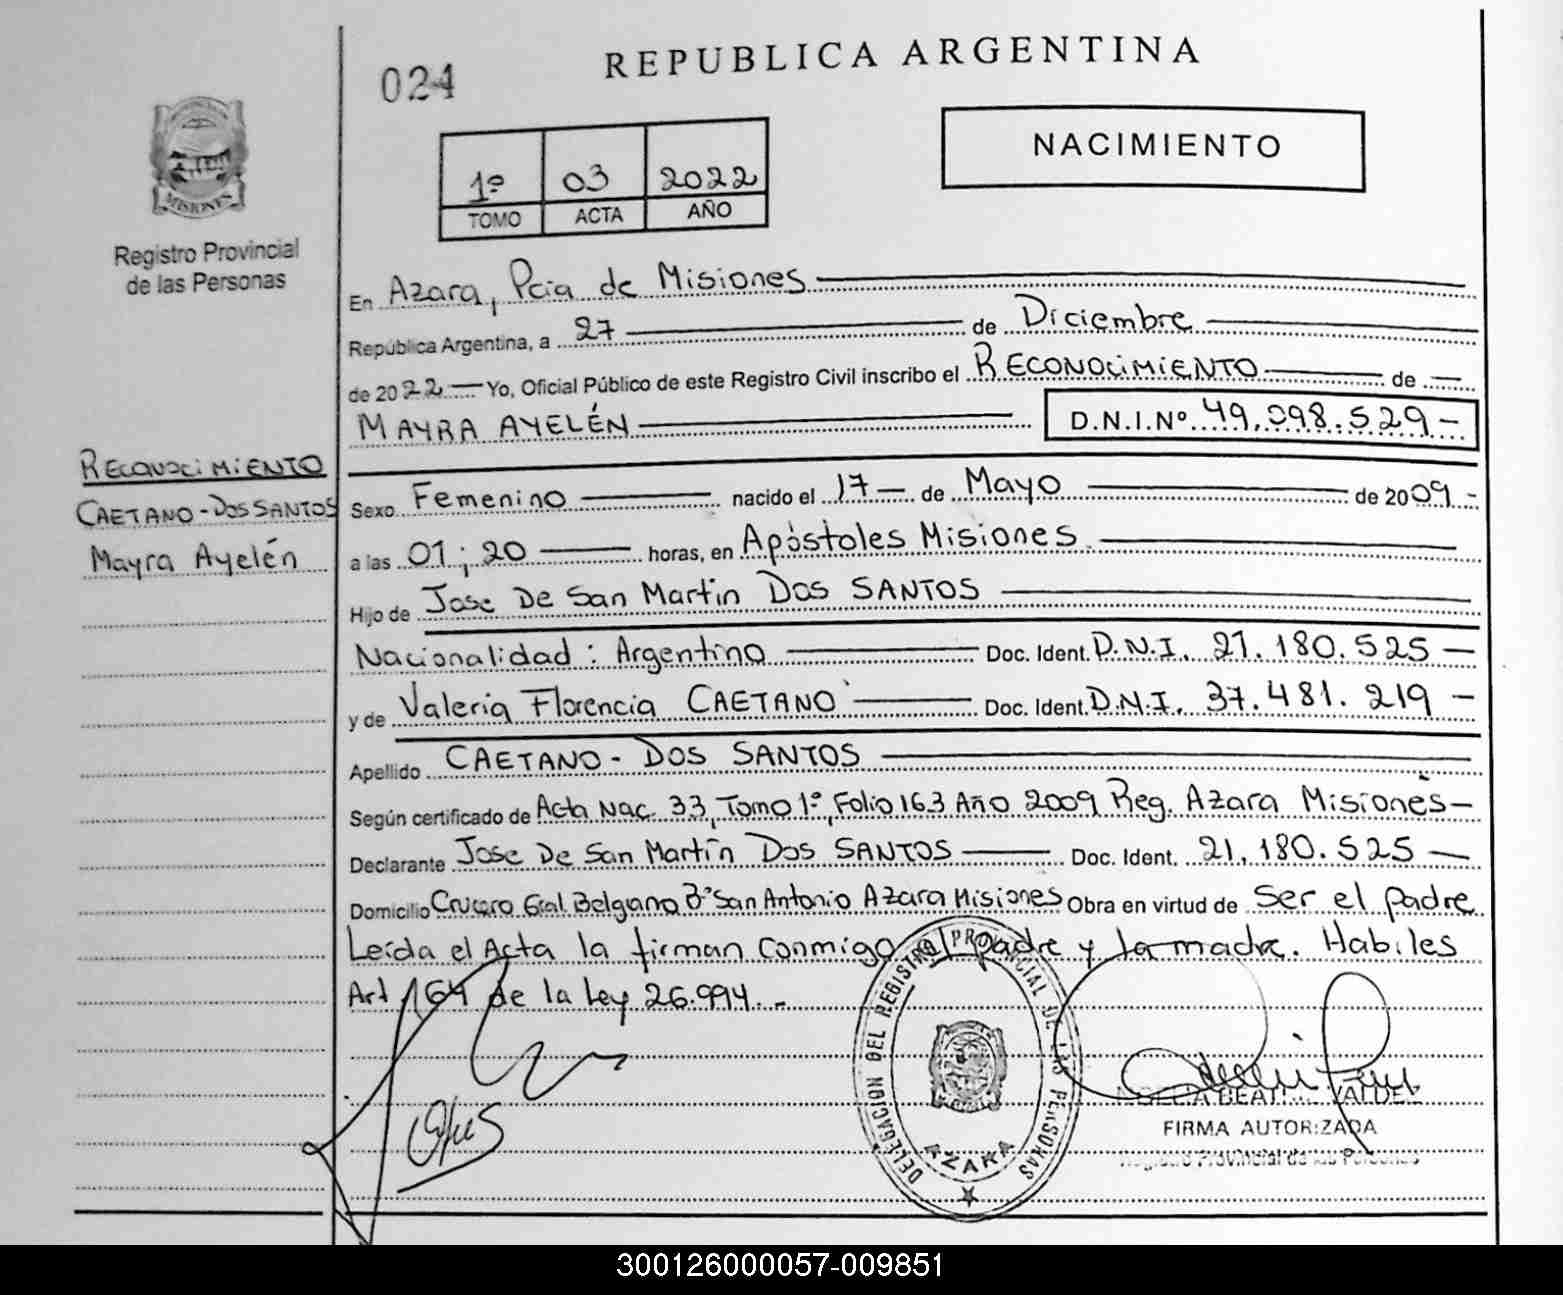 024
REPUBLICA ARGENTINA
NACIMIENTO
1º 03 2022
TOMO ACTA AÑO
MISIONES
Registro Provincial
de las Personas
En Azara, Pcia de Misiones
República Argentina, a 27 de Diciembre
de 2022 Yo, Oficial Público de este Registro Civil inscribo el RECONOCIMIENTO de
MAYRA AYELÉN D.N.I.Nº 49.098.529-
RECONOCIMIENTO
CAETANO-DOS SANTOS
Mayra Ayelén
Sexo Femenino nacido el 17 de Mayo de 2009-
a las 01:20 horas, en Apóstoles Misiones
Hijo de Jose De San Martin Dos SANTOS
Nacionalidad: Argentino Doc. Ident. D.N.I. 21.180.525-
y de Valeria Florencia CAETANO Doc. Ident. D.N.I. 37.481.219-
Apellido CAETANO-DOS SANTOS
Según certificado de Acta Nac. 33, Tomo 1º, Folio 163 Año 2009 Reg. Azara Misiones-
Declarante Jose De San Martín Dos SANTOS Doc. Ident. 21.180.525-
Domicilio Crucero Gral. Belgrano Bº San Antonio Azara Misiones Obra en virtud de Ser el padre
Leída el Acta la firman conmigo el padre y la madre. Habiles
Art 164 de la Ley 26.994.-
DELEGACION DEL REGISTRO PROVINCIAL DE LAS PERSONAS
AZARA
FIRMA AUTORIZADA
Registro Provincial de las Personas
300126000057-009851